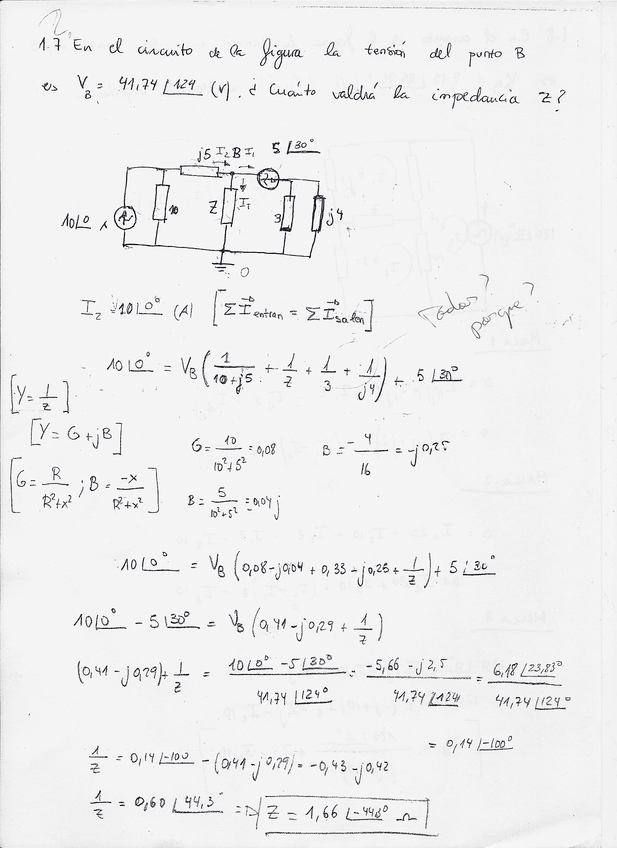 1.7 En el circuito de la figura la tensión del punto B
es V_B = 41,74 ∠124 (V). ¿ Cuánto valdrá la impedancia Z?
j5 I₂ B I₁ 5 ∠30°
10∠0 10 Z I_T 3 j4
0
I₂ = 10∠0° (A) [Σ I⃗ entran = Σ I⃗ salen]
Todos? porque?
10∠0° = V_B (1/(10+j5) + 1/Z + 1/3 + 1/j4) + 5 ∠30°
[Y = 1/Z]
[Y = G + jB]
G = 10/(10²+5²) = 0,08 B = -4/16 = -j0,25
[G = R/(R²+x²) ; B = -x/(R²+x²)]
B = 5/(10²+5²) = 0,04 j
10∠0° = V_B (0,08 - j0,04 + 0,33 - j0,25 + 1/Z) + 5 ∠30°
10∠0° - 5∠30° = V_B (0,41 - j0,29 + 1/Z)
(0,41 - j0,29) + 1/Z = (10∠0° - 5∠30°)/(41,74 ∠124°) = (-5,66 - j2,5)/(41,74 ∠124) = (6,18 ∠23,83°)/(41,74 ∠124°)
= 0,14 ∠-100°
1/Z = 0,14 ∠-100 - (0,41 - j0,29) = -0,43 - j0,42
1/Z = 0,60 ∠44,3° => Z = 1,66 ∠-44,3° Ω